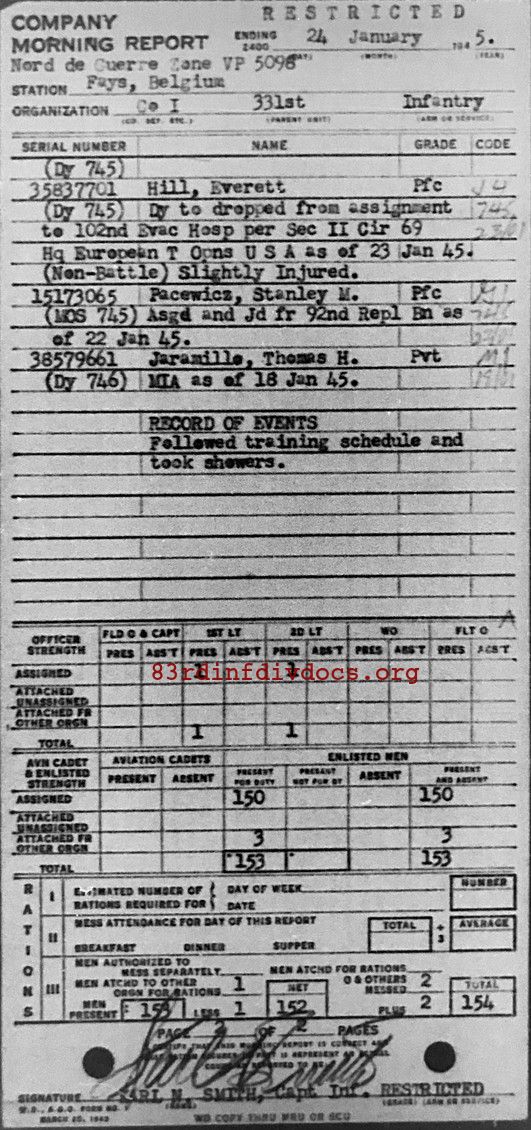 RESTRICTED
COMPANY
MORNING REPORT ENDING 2400 24 January 1945.
(DAY) (MONTH) (YEAR)
Nord de Guerre Zone VP 5098
STATION Fays, Belgium
ORGANIZATION Co I 331st Infantry
(CO. DET. ETC.) (PARENT UNIT) (ARM OR SERVICE)
SERIAL NUMBER NAME GRADE CODE
(Dy 745)
35837701 Hill, Everett Pfc
(Dy 745) Dy to dropped from assignment
to 102nd Evac Hosp per Sec II Cir 69
Hq European T Opns U S A as of 23 Jan 45.
(Non-Battle) Slightly Injured.
15173065 Pacewicz, Stanley M. Pfc
(MOS 745) Asgd and Jd fr 92nd Repl Bn as
of 22 Jan 45.
38579661 Jaramille, Thomas H. Pvt
(Dy 746) MIA as of 18 Jan 45.
RECORD OF EVENTS
Followed training schedule and
took showers.
OFFICER STRENGTH FLD O & CAPT 1ST LT 2D LT WO FLT O
PRES ABS'T PRES ABS'T PRES ABS'T PRES ABS'T PRES ABS'T
ASSIGNED 1 1
83rdinfdivdocs.org
ATTACHED UNASSIGNED
ATTACHED FR OTHER ORGN
TOTAL 1 1
AVN CADET & ENLISTED STRENGTH AVIATION CADETS ENLISTED MEN
PRESENT ABSENT PRESENT FOR DUTY PRESENT NOT FOR DY ABSENT PRESENT AND ABSENT
ASSIGNED 150 150
ATTACHED UNASSIGNED
ATTACHED FR OTHER ORGN 3 3
TOTAL 153 153
RATIONS
I ESTIMATED NUMBER OF RATIONS REQUIRED FOR { DAY OF WEEK DATE NUMBER
II MESS ATTENDANCE FOR DAY OF THIS REPORT TOTAL ÷ 3 AVERAGE
BREAKFAST DINNER SUPPER
III MEN AUTHORIZED TO MESS SEPARATELY MEN ATCHD FOR RATIONS
MEN ATCHD TO OTHER ORGN FOR RATIONS 1 NET O & OTHERS MESSED 2 TOTAL
MEN PRESENT 153 LESS 1 152 PLUS 2 154
PAGE 2 OF 2 PAGES
I CERTIFY THAT THIS MORNING REPORT IS CORRECT AND
SIGNATURE EARL M. SMITH, Capt Inf. RESTRICTED
(NAME) (GRADE) (ARM OR SERVICE)
W.D., A.G.O. FORM NO. 1
MARCH 25, 1943
WD COPY THRU MRU OR SCU